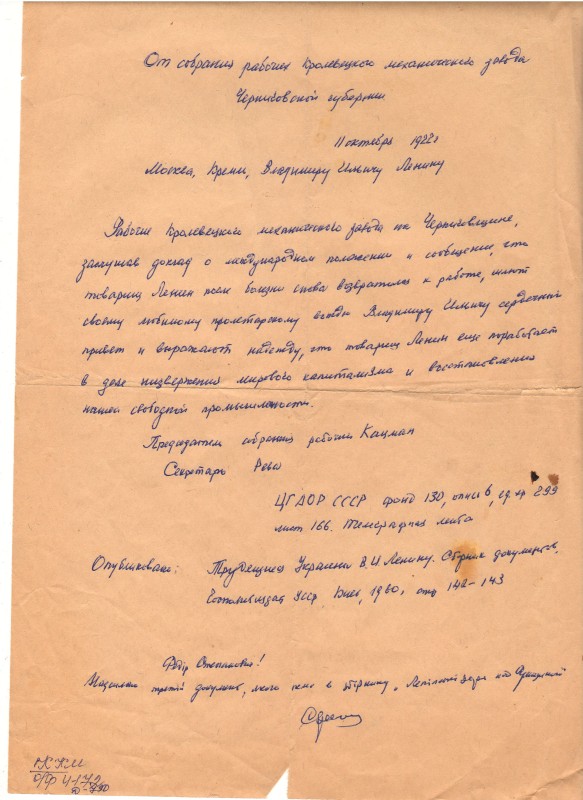 От собрания рабочих Кролевецкого механического завода
Черниговской губернии
11 октября 1922 г
Москва, Кремль, Владимиру Ильичу Ленину
Рабочие Кролевецкого механического завода на Черниговщине,
заслушав доклад о международном положении и сообщении, что
товарищ Ленин после болезни снова возвратился к работе, шлют
своему любимому пролетарскому вождю Владимиру Ильичу сердечный
привет и выражают надежду, что товарищ Ленин еще поработает
в деле низвержения мирового капитализма и восстановления
нашей свободной промышленности.
Председатель собрания рабочих Кацман
Секретарь Рева
ЦГАОР СССР фонд 130, опись 6, ед. хр 299
лист 166. Телеграфная лента
Опубликовано: Трудящиеся Украины В.И Ленину. Сборник документов.
Госполитиздат УССР Киев, 1960, стр 142-143
Федір Степанович!
Надсилаю третій документ, якого нема в збірнику "
ККМ
О/Ф 4172